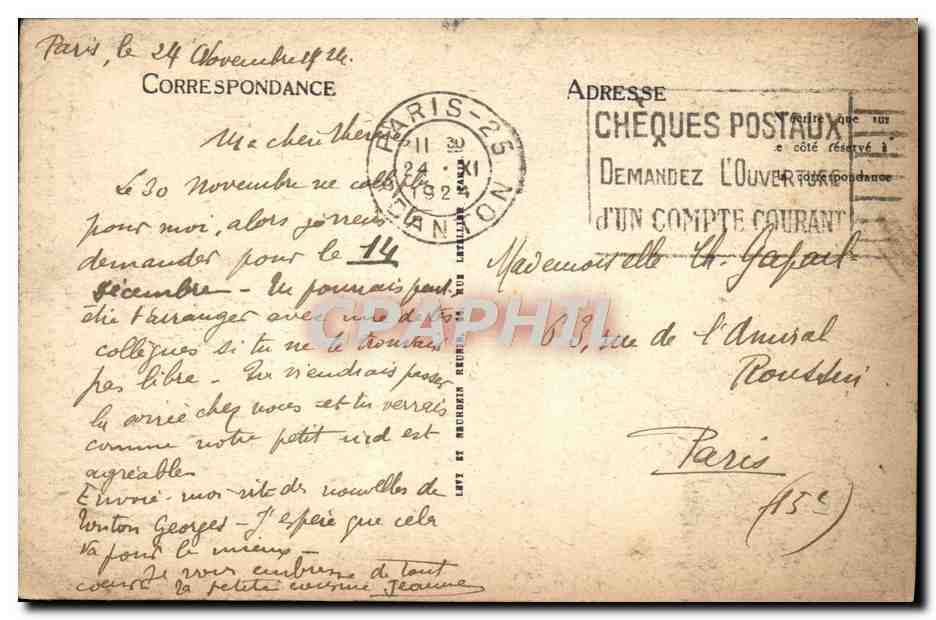 Paris, le 24 Novembre 1924.
CORRESPONDANCE
Ma chère Thérèse
Le 30 Novembre ne colle pas
pour moi, alors j'irai
demander pour le 14
décembre - Tu pourrais peut
être t'arranger avec une de tes
collègues si tu ne te trouvais
pas libre - Tu viendrais passer
la soirée chez nous et tu verrais
comme notre petit nid est
agréable
Envoie-moi vite des nouvelles de
tonton Georges - J'espère que cela
va pour le mieux -
Je vous embrasse de tout
coeur la petite cousine Jeanne
PARIS-25
11 30
24 · XI
1924
DANTON
LEVY ET NEURDEIN REUNIS, RUE LETELLIER, PARIS
ADRESSE
N'écrire que sur
le côté réservé à
la correspondance
CHÈQUES POSTAUX
DEMANDEZ L'OUVERTURE
D'UN COMPTE COURANT
Mademoiselle Th.
63, rue de l'Amiral
Roussin
Paris
(15e)
CPAPHIL